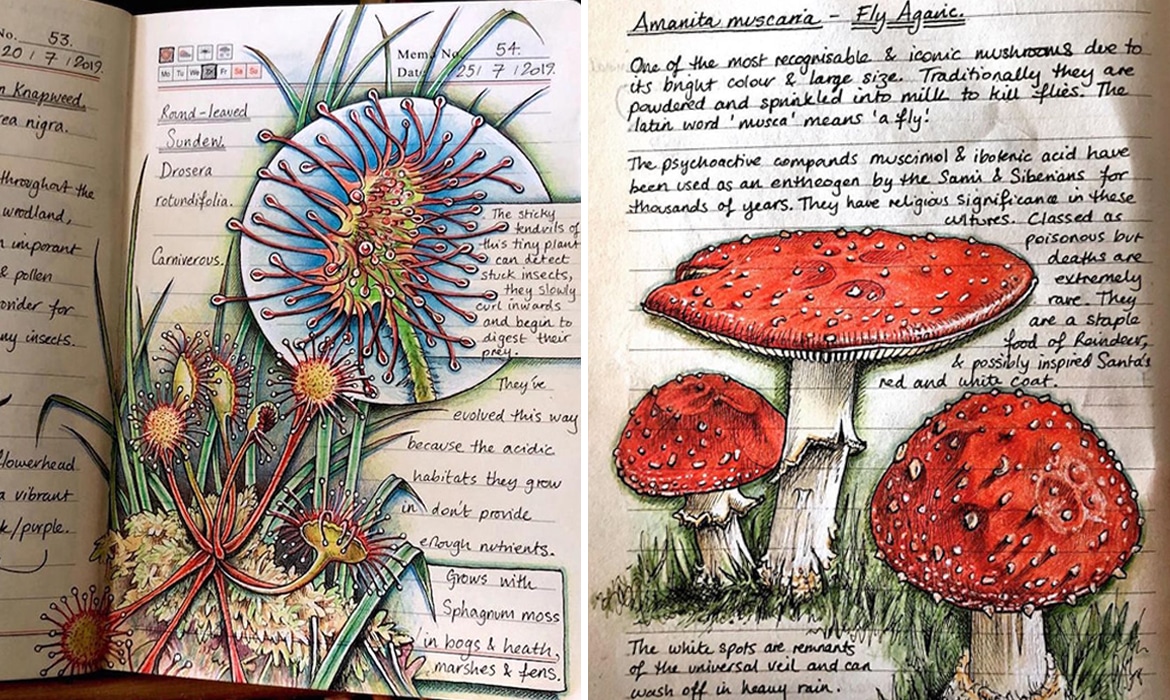 No. 53.
20 / 7 / 2019.
Knapweed.
nigra.
throughout the
woodland,
imporant
& pollen
for
insects.
flowerhead
a vibrant
/purple.
Memo No. 54.
Mo Tu We Th Fr Sa Su
Date 25 / 7 / 2019.
Round-leaved
Sundew.
Drosera
rotundifolia.
Carniverous.
The sticky
tendrils of
this tiny plant
can detect
stuck insects,
they slowly
curl inwards
and begin to
digest their
prey.
They've
evolved this way
because the acidic
habitats they grow
in don't provide
enough nutrients.
Grows with
Sphagnum moss
in bogs & heath,
marshes & fens.
Amanita muscaria - Fly Agaric.
One of the most recognisable & iconic mushrooms due to
its bright colour & large size. Traditionally they are
powdered and sprinkled into milk to kill flies. The
latin word 'musca' means 'a fly'.
The psychoactive compands muscimol & ibotenic acid have
been used as an entheogen by the Sami & Siberians for
thousands of years. They have religious significance in these
cultures. Classed as
poisonous but
deaths are
extremely
rare. They
are a staple
food of Reindeer,
& possibly inspired Santa's
red and white coat.
The white spots are remnants
of the universal veil and can
wash off in heavy rain.